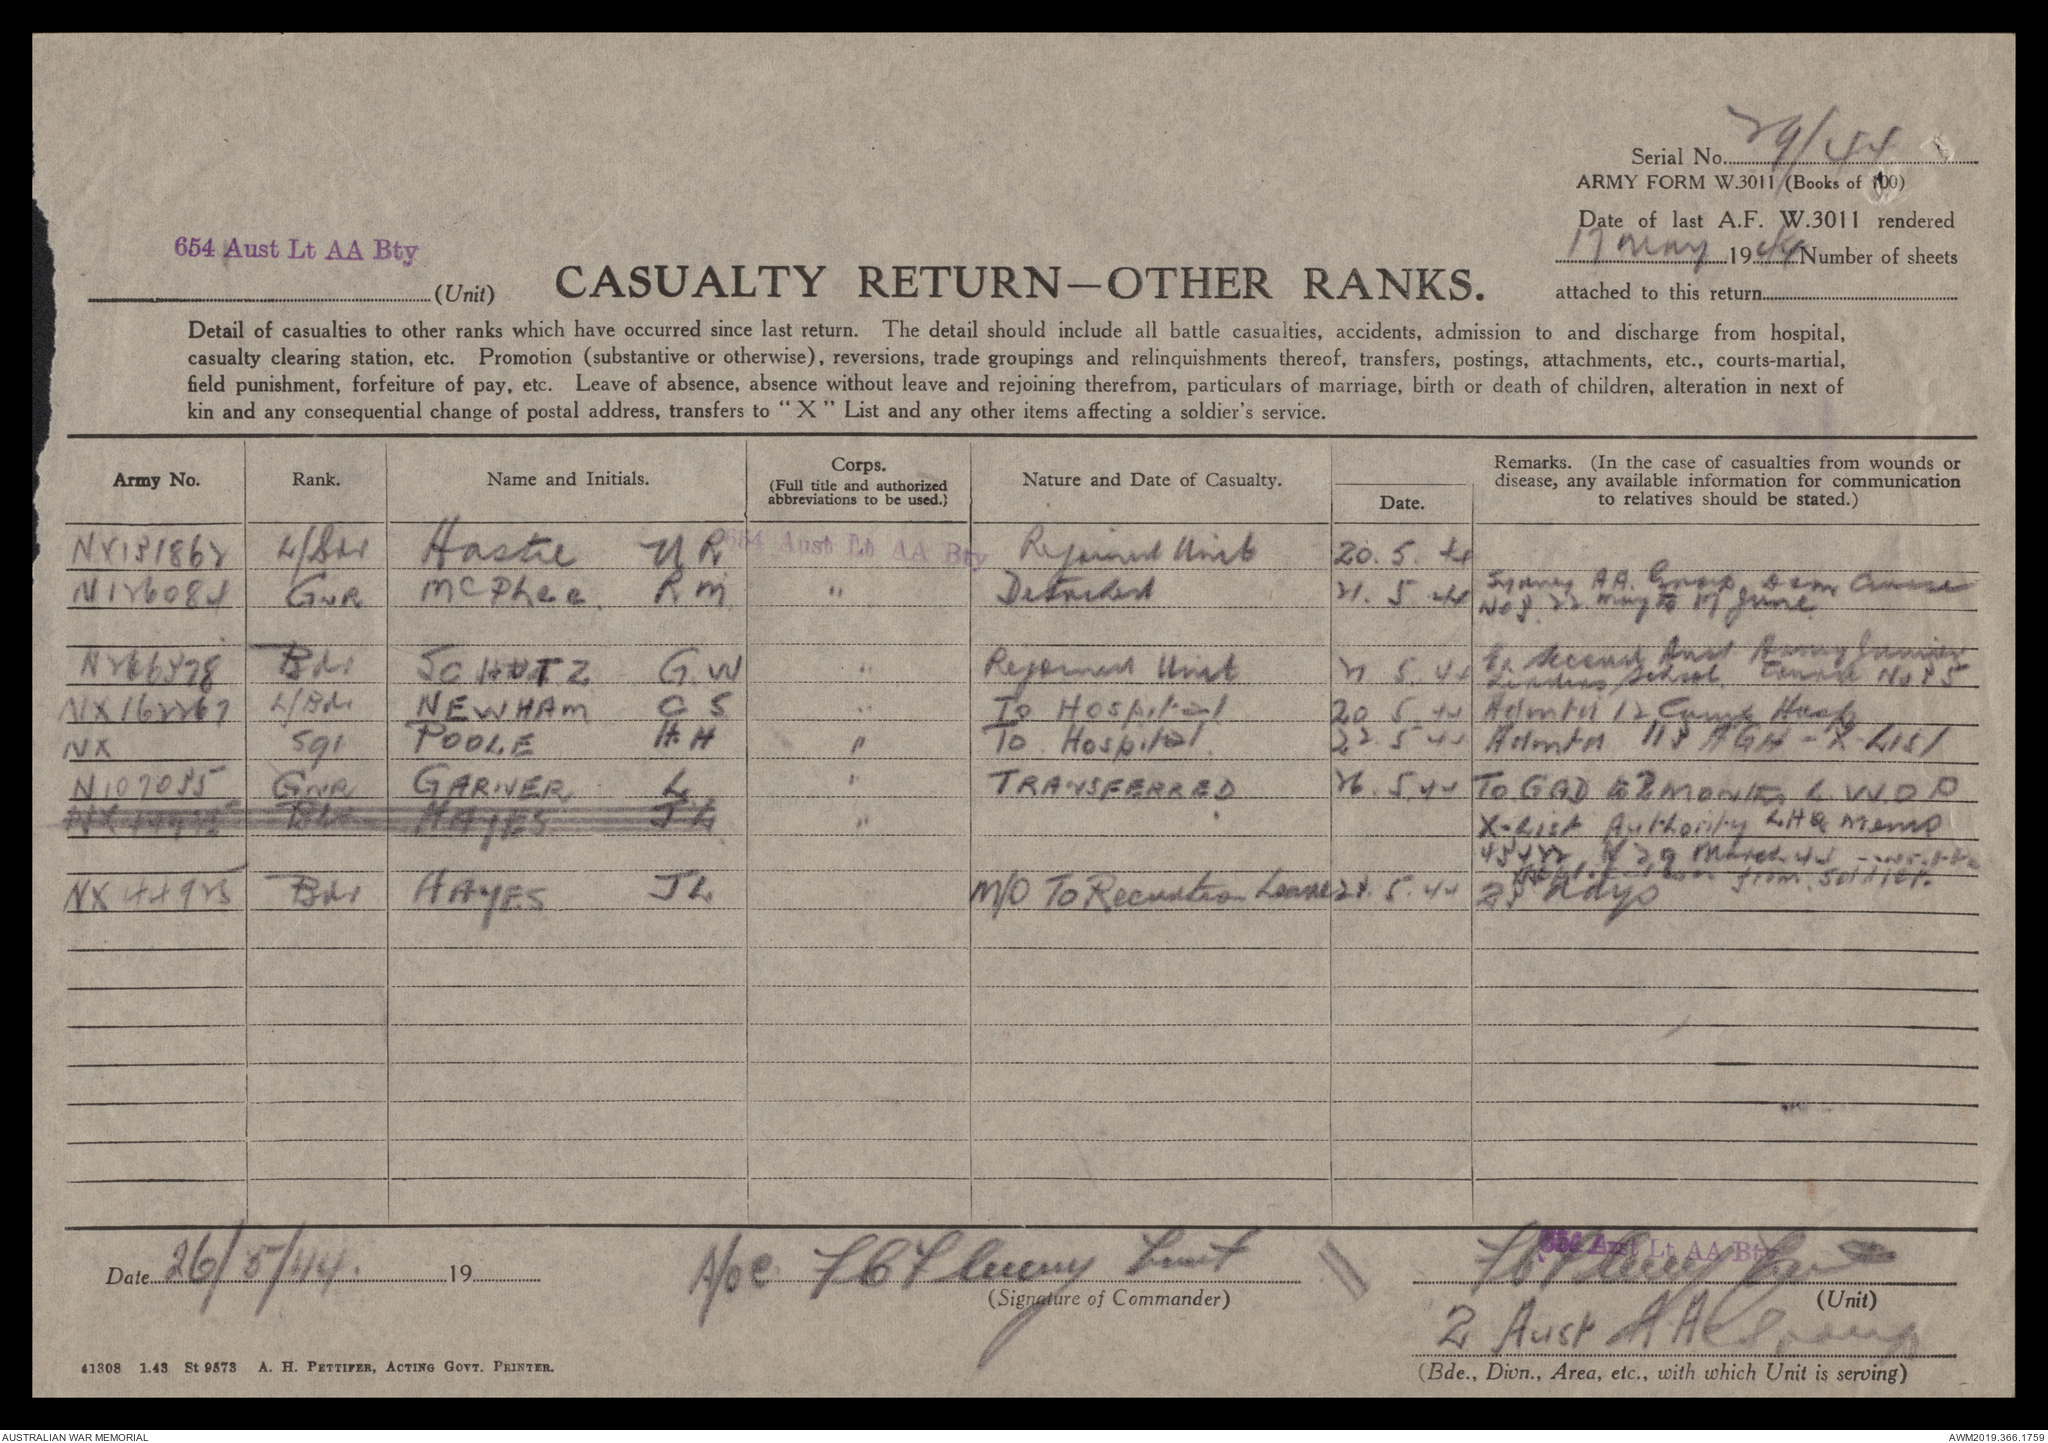 Serial No. 29/44
ARMY FORM W.3011 (Books of 100)
Date of last A.F. W.3011 rendered
17 May 1944 Number of sheets
attached to this return
654 Aust Lt AA Bty
(Unit)
CASUALTY RETURN—OTHER RANKS.
Detail of casualties to other ranks which have occurred since last return. The detail should include all battle casualties, accidents, admission to and discharge from hospital,
casualty clearing station, etc. Promotion (substantive or otherwise), reversions, trade groupings and relinquishments thereof, transfers, postings, attachments, etc., courts-martial,
field punishment, forfeiture of pay, etc. Leave of absence, absence without leave and rejoining therefrom, particulars of marriage, birth or death of children, alteration in next of
kin and any consequential change of postal address, transfers to "X" List and any other items affecting a soldier's service.
Army No. Rank. Name and Initials. Corps. (Full title and authorized abbreviations to be used.) Nature and Date of Casualty. Date. Remarks. (In the case of casualties from wounds or disease, any available information for communication to relatives should be stated.)
L/Bdr Hastie 654 Aust Lt AA Bty Rejoined Unit 20. 5. 44
Gnr McPhee R M " Detached 21. 5. 44 Sydney AA. Group
22 May to 17 June
Bdr SCHUTZ G.W " Rejoined Unit 21 5. 44 Ex Second Aust Army Junior
Leaders School Course No 85
NX162267 L/Bdr NEWHAM C S " To Hospital 20 5. 44 Admtd 12 Camp Hosp
NX Sgt POOLE H.H " To Hospital 22. 5 44 Admtd 113 AGH - X-LIST
N107085 Gnr GARNER L " TRANSFERRED 26. 5. 44 To GDD 2 MONTHS L W O P
Bdr HAYES J L " X-List Authority LHQ Memo
29 March 44
from soldier.
NX44925 Bdr HAYES J L M/O To Recreation Leave 24. 5. 44 Days
Date 26/5/44. 19
A/OC Lieut
(Signature of Commander)
654 Aust Lt AA Bty
(Unit)
2 Aust AA Group
(Bde., Divn., Area, etc., with which Unit is serving)
41308 1.43 St 9573 A. H. PETTIFER, ACTING GOVT. PRINTER.
AUSTRALIAN WAR MEMORIAL
AWM2019.366.1759